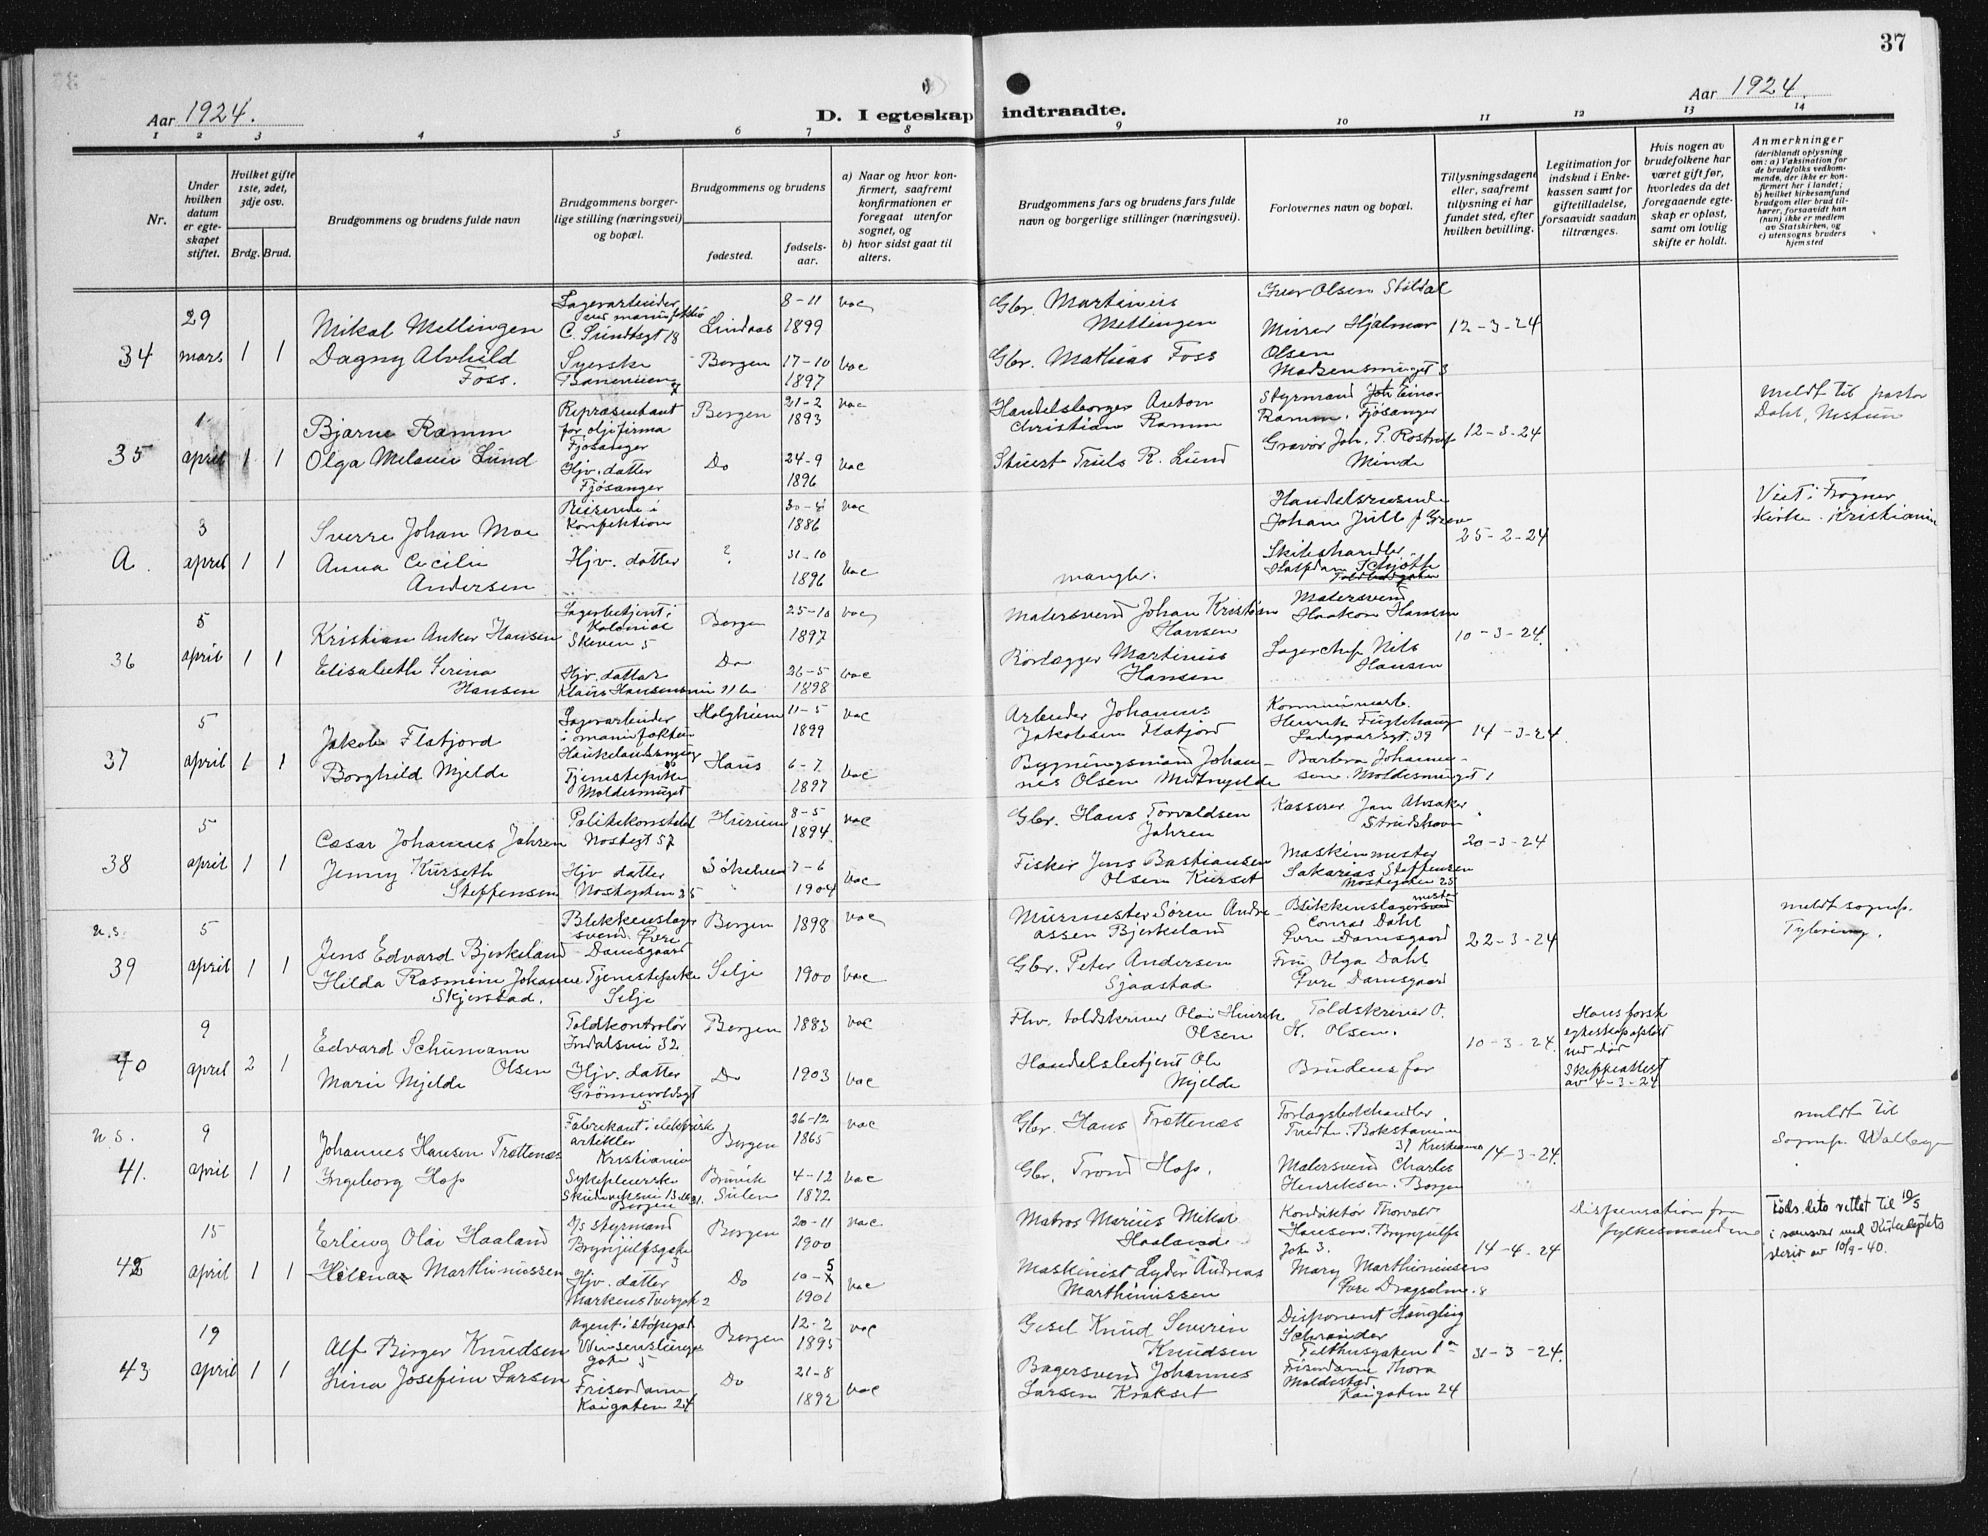 37
Aar 1924.
Aar 1924.
D. I egteskap indtraadte.
1 2 3 4 5 6 7 8 9 10 11 12 13 14
Nr.
Under hvilken datum er egteskapet stiftet.
Hvilket gifte 1ste, 2det, 3dje osv.
Brdg. Brud.
Brudgommens og brudens fulde navn
Brudgommens borgerlige stilling (næringsvei) og bopæl.
Brudgommens og brudens
fødested.
fødselsaar.
a) Naar og hvor konfirmert, saafremt konfirmationen er foregaat utenfor sognet, og
b) hvor sidst gaat til alters.
Brudgommens fars og brudens fars fulde navn og borgerlige stillinger (næringsvei).
Forlovernes navn og bopæl.
Tillysningsdagene eller, saafremt tillysning ei har fundet sted, efter hvilken bevilling.
Legitimation for indskud i Enkekassen samt for giftetilladelse, forsaavidt saadan tiltrænges.
Hvis nogen av brudefolkene har været gift før, hvorledes da det foregaaende egteskap er opløst, samt om lovlig skifte er holdt.
Anmerkninger
(deriblandt oplysning om: a) Vaksination for de brudefolks vedkommende, der ikke er konfirmert her i landet; b) hvilket kirkesamfund brudgom eller brud tilhører, forsaavidt han (hun) ikke er medlem av Statskirken, og c) utensogns bruders hjemsted
34
29 mars
1 1
Mikal Mellingen
Dagny Alvhild Foss.
Lagerarbeider
C. Sundtsgt 18
Syerske
Lindaas
Bergen
8-11 1899
17-10 1897
vac
vac
Gbr. Martinius Mellingen
Gbr. Mathias Foss
Iver Olsen Stöldal
Murer Hjalmar Olsen
Madsensmuget 3
12-3-24
35
1 april
1 1
Bjarne Ramm
Olga Melanie Lund
Repræsentant for oljefirma
Fjösanger
Hjv. datter
Fjösanger
Bergen
Do
21-2 1893
24-9 1896
vac
vac
Handelsborger Anton Christian Ramm
Stuert Truls R. Lund
Styrmand Einar Ramm, Fjösanger
Gravör Joh. P. Rostrup
Minde
12-3-24
meldt til pastor Dahl, Nesttun
A.
3 april
1 1
Sverre Johan Moe
Anna Cecilie Andersen
Reisende i Konfektion
Hjv. datter
?
1886
31-10 1896
vac
vac
mangler.
Handelsreisende
Johan Juell
Skibshandler
Halfdan Schjøth
25-2-24
Viet i Frogner Kirke. Kristiania
36
5 april
1 1
Kristian Anker Hansen
Elisabeth Serina Hansen
Lagerbetjent i Kolonial
Skeven 5
Hjv. datter
Klaus Hansensvei 11 b
Bergen
Do
25-10 1897
26-5 1898
vac
vac
Malersvend Johan Kristian Hansen
Rörlægger Martinius Hansen
Malersvend Haakon Hansen
Lagerchef Nils Hansen
10-3-24.
37
5 april
1 1
Jakob Flatjord
Borghild Mjelde
Lagerarbeider i manufaktur
Tjenestepike
Moldesmuget
Haus
11-5 1899
6-7 1897
vac
vac
Arbeider Johannes Jakobsen Flatjord
Bygningsmand Johannes Olsen
Kommunearb. Henrik Fuglehaug
Ladegaardsgt. 39
Barbra Johannesen. Moldesmuget 1
14-3-24.
38
5 april
1 1
Cæsar Johannes Jahren
Jenny Kurseth Steffensen
Politikonstabel
Nostegt 57
Hjv datter
Nostegaten 35
Hurum
8-5 1894
7-6 1904
vac
vac
Gbr. Hans Torvaldsen Jahren
Fisker Jens Bastiansen Olsen Kurset
Kasserer Jan Alvsaker
Strudshavn
Maskinmester
Sakarias Steffensen
Nostegaten 25
20-3-24
u.s.
39
5 april
1 1
Jens Edvard Bjerkeland
Hilda Rasmine Johanne Skjerstad.
Blikkenslagersvend. Övre Damsgaard
Tjenestepike
Selje
Bergen
Selje
1898
1900
vac
vac
Murmester Sören Andreassen Bjerkeland
Gbr. Peter Andersen Sjaastad
Blikkenslagermester
Conrad Dahl
Övre Damsgaard
Fru Olga Dahl
Övre Damsgaard
22-3-24
meldt sognep.
40
9 april
2 1
Edvard Schumann Olsen
Marie Mjelde
Toldkontrolör
Indalsvei 32
Hjv. datter
Grönnevoldsgt 5
Bergen
Do
1883
1903
vac
vac
Fhv. toldskriver Olai Henrik Olsen
Handelsbetjent Ole Mjelde
Toldskriver O. H. Olsen.
Brudens far
10-3-24.
Hans første egteskap opløst ved død
Skifteattest av 4-3-24
u.s.
41.
9 april
1 1
Johannes Hansen Trættenæs
Ingeborg Hop
Fabrikant i elektriske artikler
Kristiania
Sykepleierske
Bergen
Bergen
26-12 1865
4-12 1872
vac
vac
Gbr. Hans Trættenæs
Gbr. Trond Hop.
Forlagsbokhandler
Kristiania
Malersvend Charles Henriksen. Bergen
14-3-24.
meldt til Sognep.
42
15 april
1 1
Erling Olai Haaland
Helena Marthinussen
styrmand
Hjv. datter
Bergen
Do
20-11 1900
10-5 1901
vac
vac
Matros Marius Mikal Haaland
Maskinist Lyder Andreas Marthinussen
Konduktör Thorvald Hansen. Brynjulfs
gate 3.
Mary Marthinussen
14-4-24
Dispensation fra fylkesmanden
Föds.dato rettet til 10/5 i samsvar med Kirkedeptets skriv av 10/9-40.
43
19 april
1 1
Alf Birger Knudsen
Lina Josefine Larsen
Agent i
gate 5
Frisördame
Kaigaten 24
Bergen
Do
12-2 1895
21-8 1892
vac
vac
Gesel Knud Severin Knudsen
Bagersvend Johannes Larsen Krakset
Disponent Haugling Schrøder
Frisördame Thora Moldestad
Kaigaten 24
31-3-24.